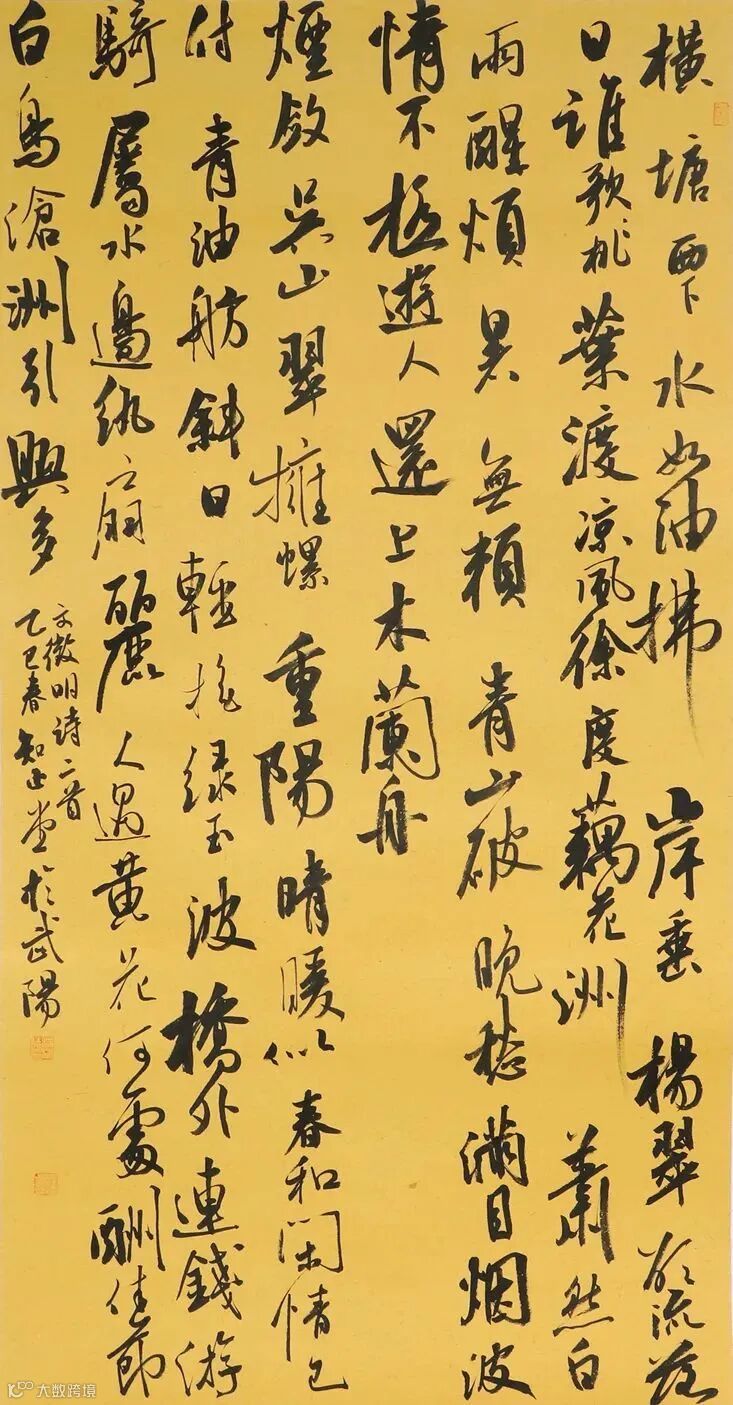 橫塘西下水如油拂岸垂楊翠欲流落
日誰歌桃葉渡涼風徐度藕花洲蕭然白
雨醒煩暑無賴青山破晚愁滿目烟波
情不極遊人還上木蘭舟
煙斂吳山翠擁螺重陽晴暖似春和閑情已
付青油舫斜日輕搖綠玉波橋外連錢游
騎屬水邊紈扇麗人過黃花何處酬佳節
白鳥滄洲引興多
文徵明詩二首
乙巳春知止堂於武陽
大数跨境